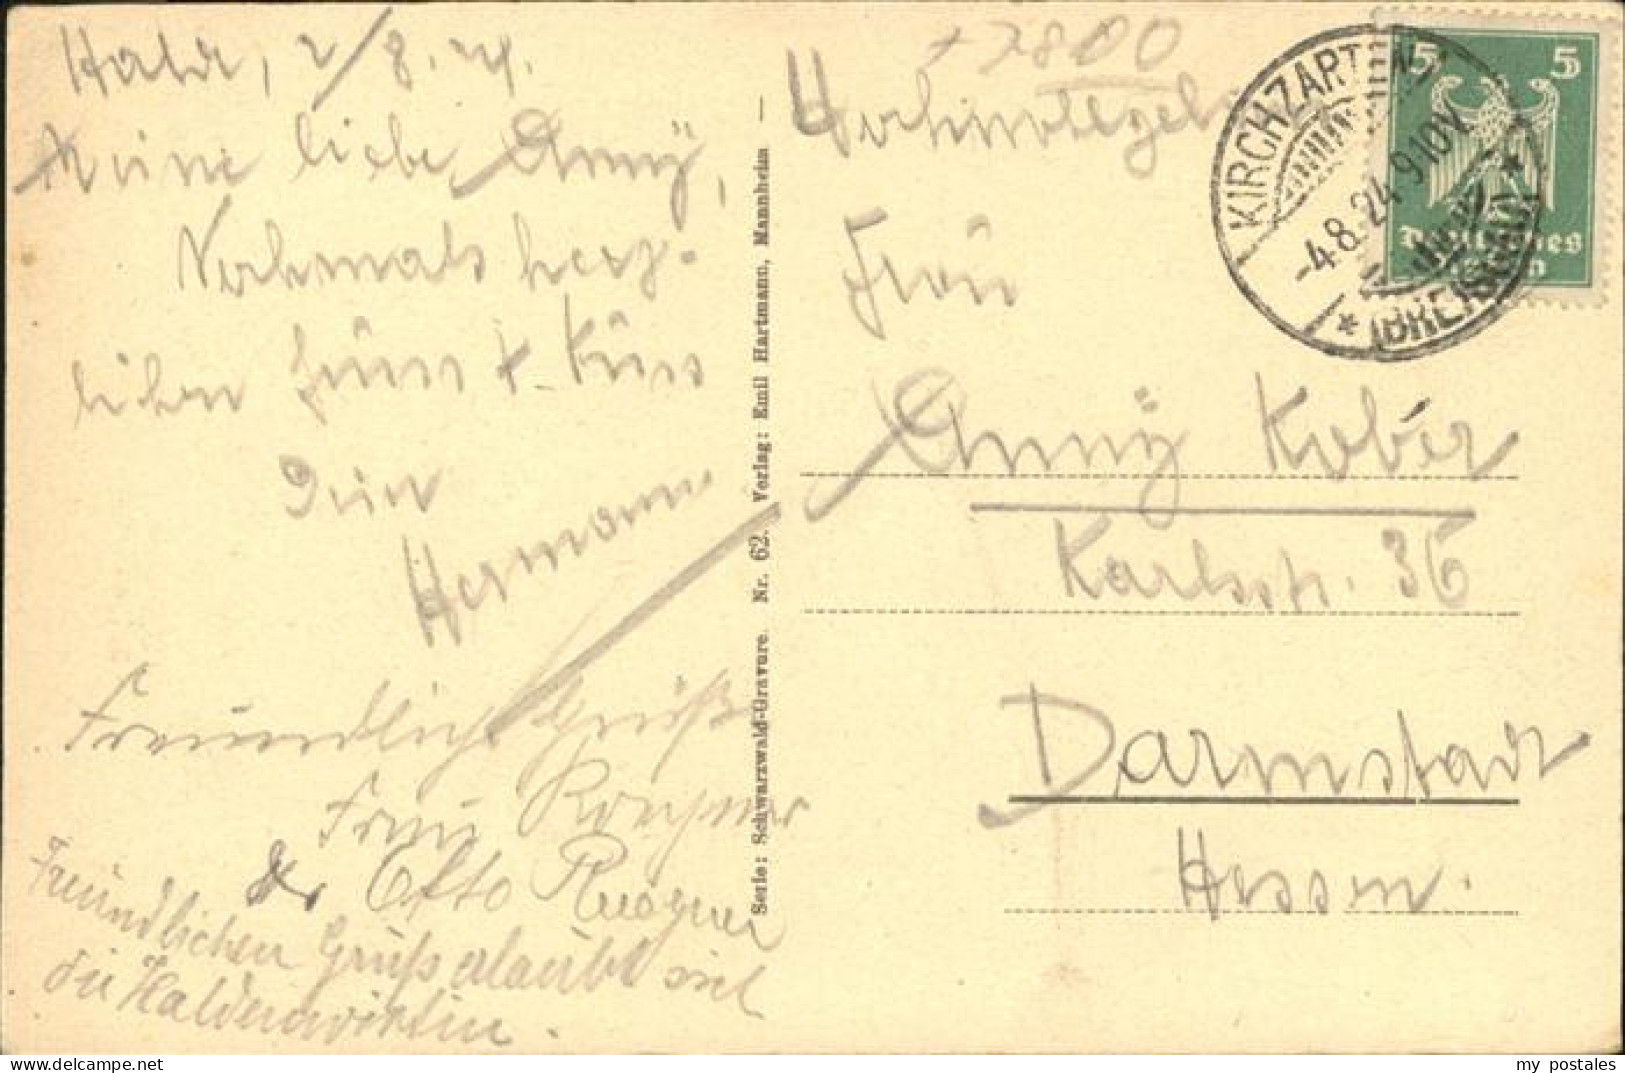 Halde, 2/8. 24.
Meine liebe Anny,
Nochmals herz-
lichen Gruss + Kuss
Dein
Hermann
Freundliche Grüße
Frau
Dr Otto
Freundlichen Gruß erlaubt sich
die Haldenwirtin.
Serie: Schwarzwald-Gravure. Nr. 62. Verlag: Emil Hartmann, Mannheim —
+7800
KIRCHZARTEN
-4.8.24. 9-10V.
* (BREISGAU) *
5 5
Deutsches
Reich
Frau
Anny Kober
Karlsstr. 36
Darmstadt
Hessen.
my postales